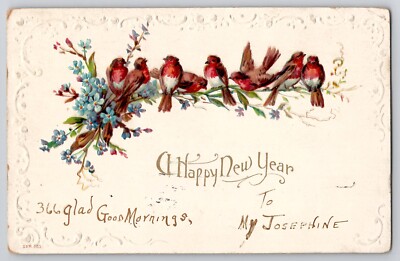 A Happy New Year
366 glad Good Mornings,
To
My Josephine